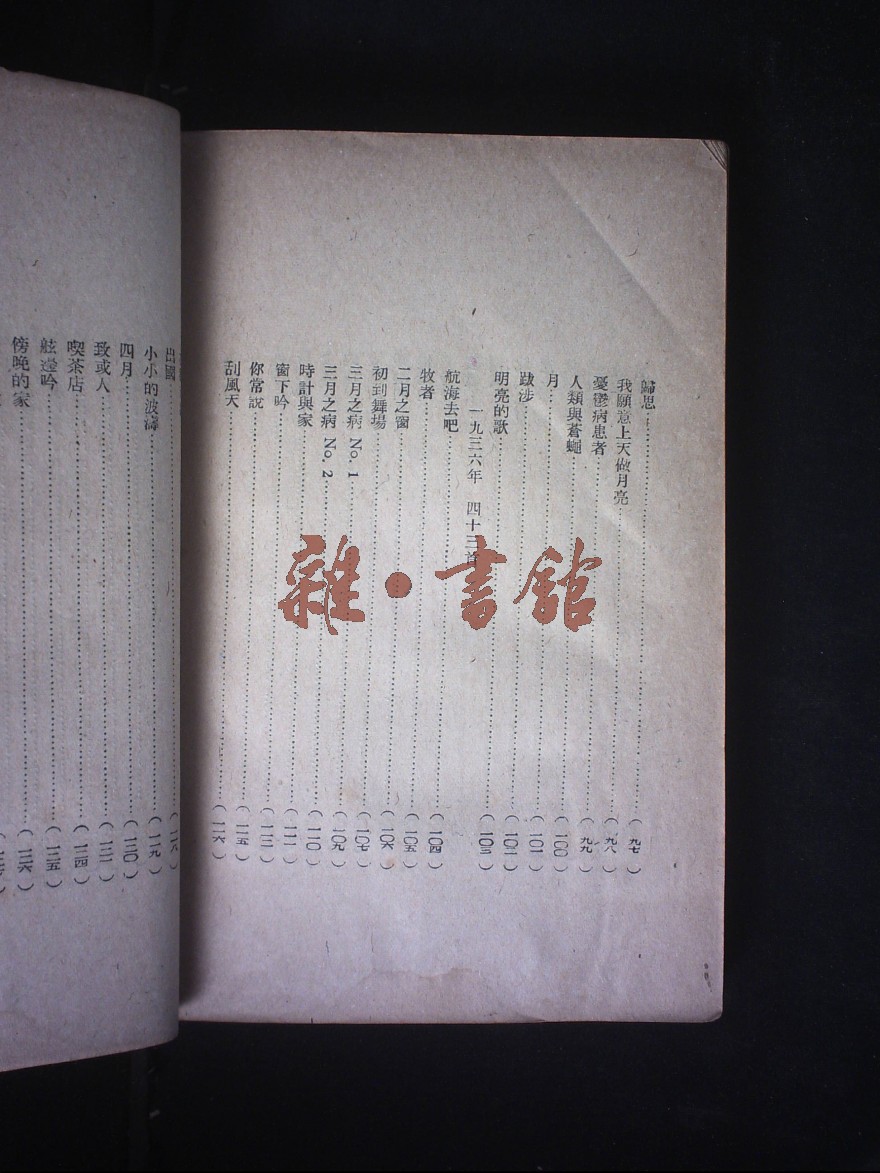 歸思……（九七）
我願意上天做月亮……（九八）
憂鬱病患者……（九九）
人類與蒼蠅……（一〇〇）
月……（一〇一）
跋涉……（一〇二）
明亮的歌……（一〇三）
一九三六年　四十三首
航海去吧……（一〇四）
牧者……（一〇五）
二月之窗……（一〇六）
初到舞場……（一〇七）
三月之病 No. 1……（一〇九）
三月之病 No. 2……（一一〇）
時計與家……（一一一）
窗下吟……
你常說……（一一五）
刮風天……（一一六）
出國……（一一八）
小小的波濤……（一一九）
四月……（一二〇）
致或人……
喫茶店……（一二四）
舷邊吟……（一二五）
傍晚的家……（一二六）
雜·書館